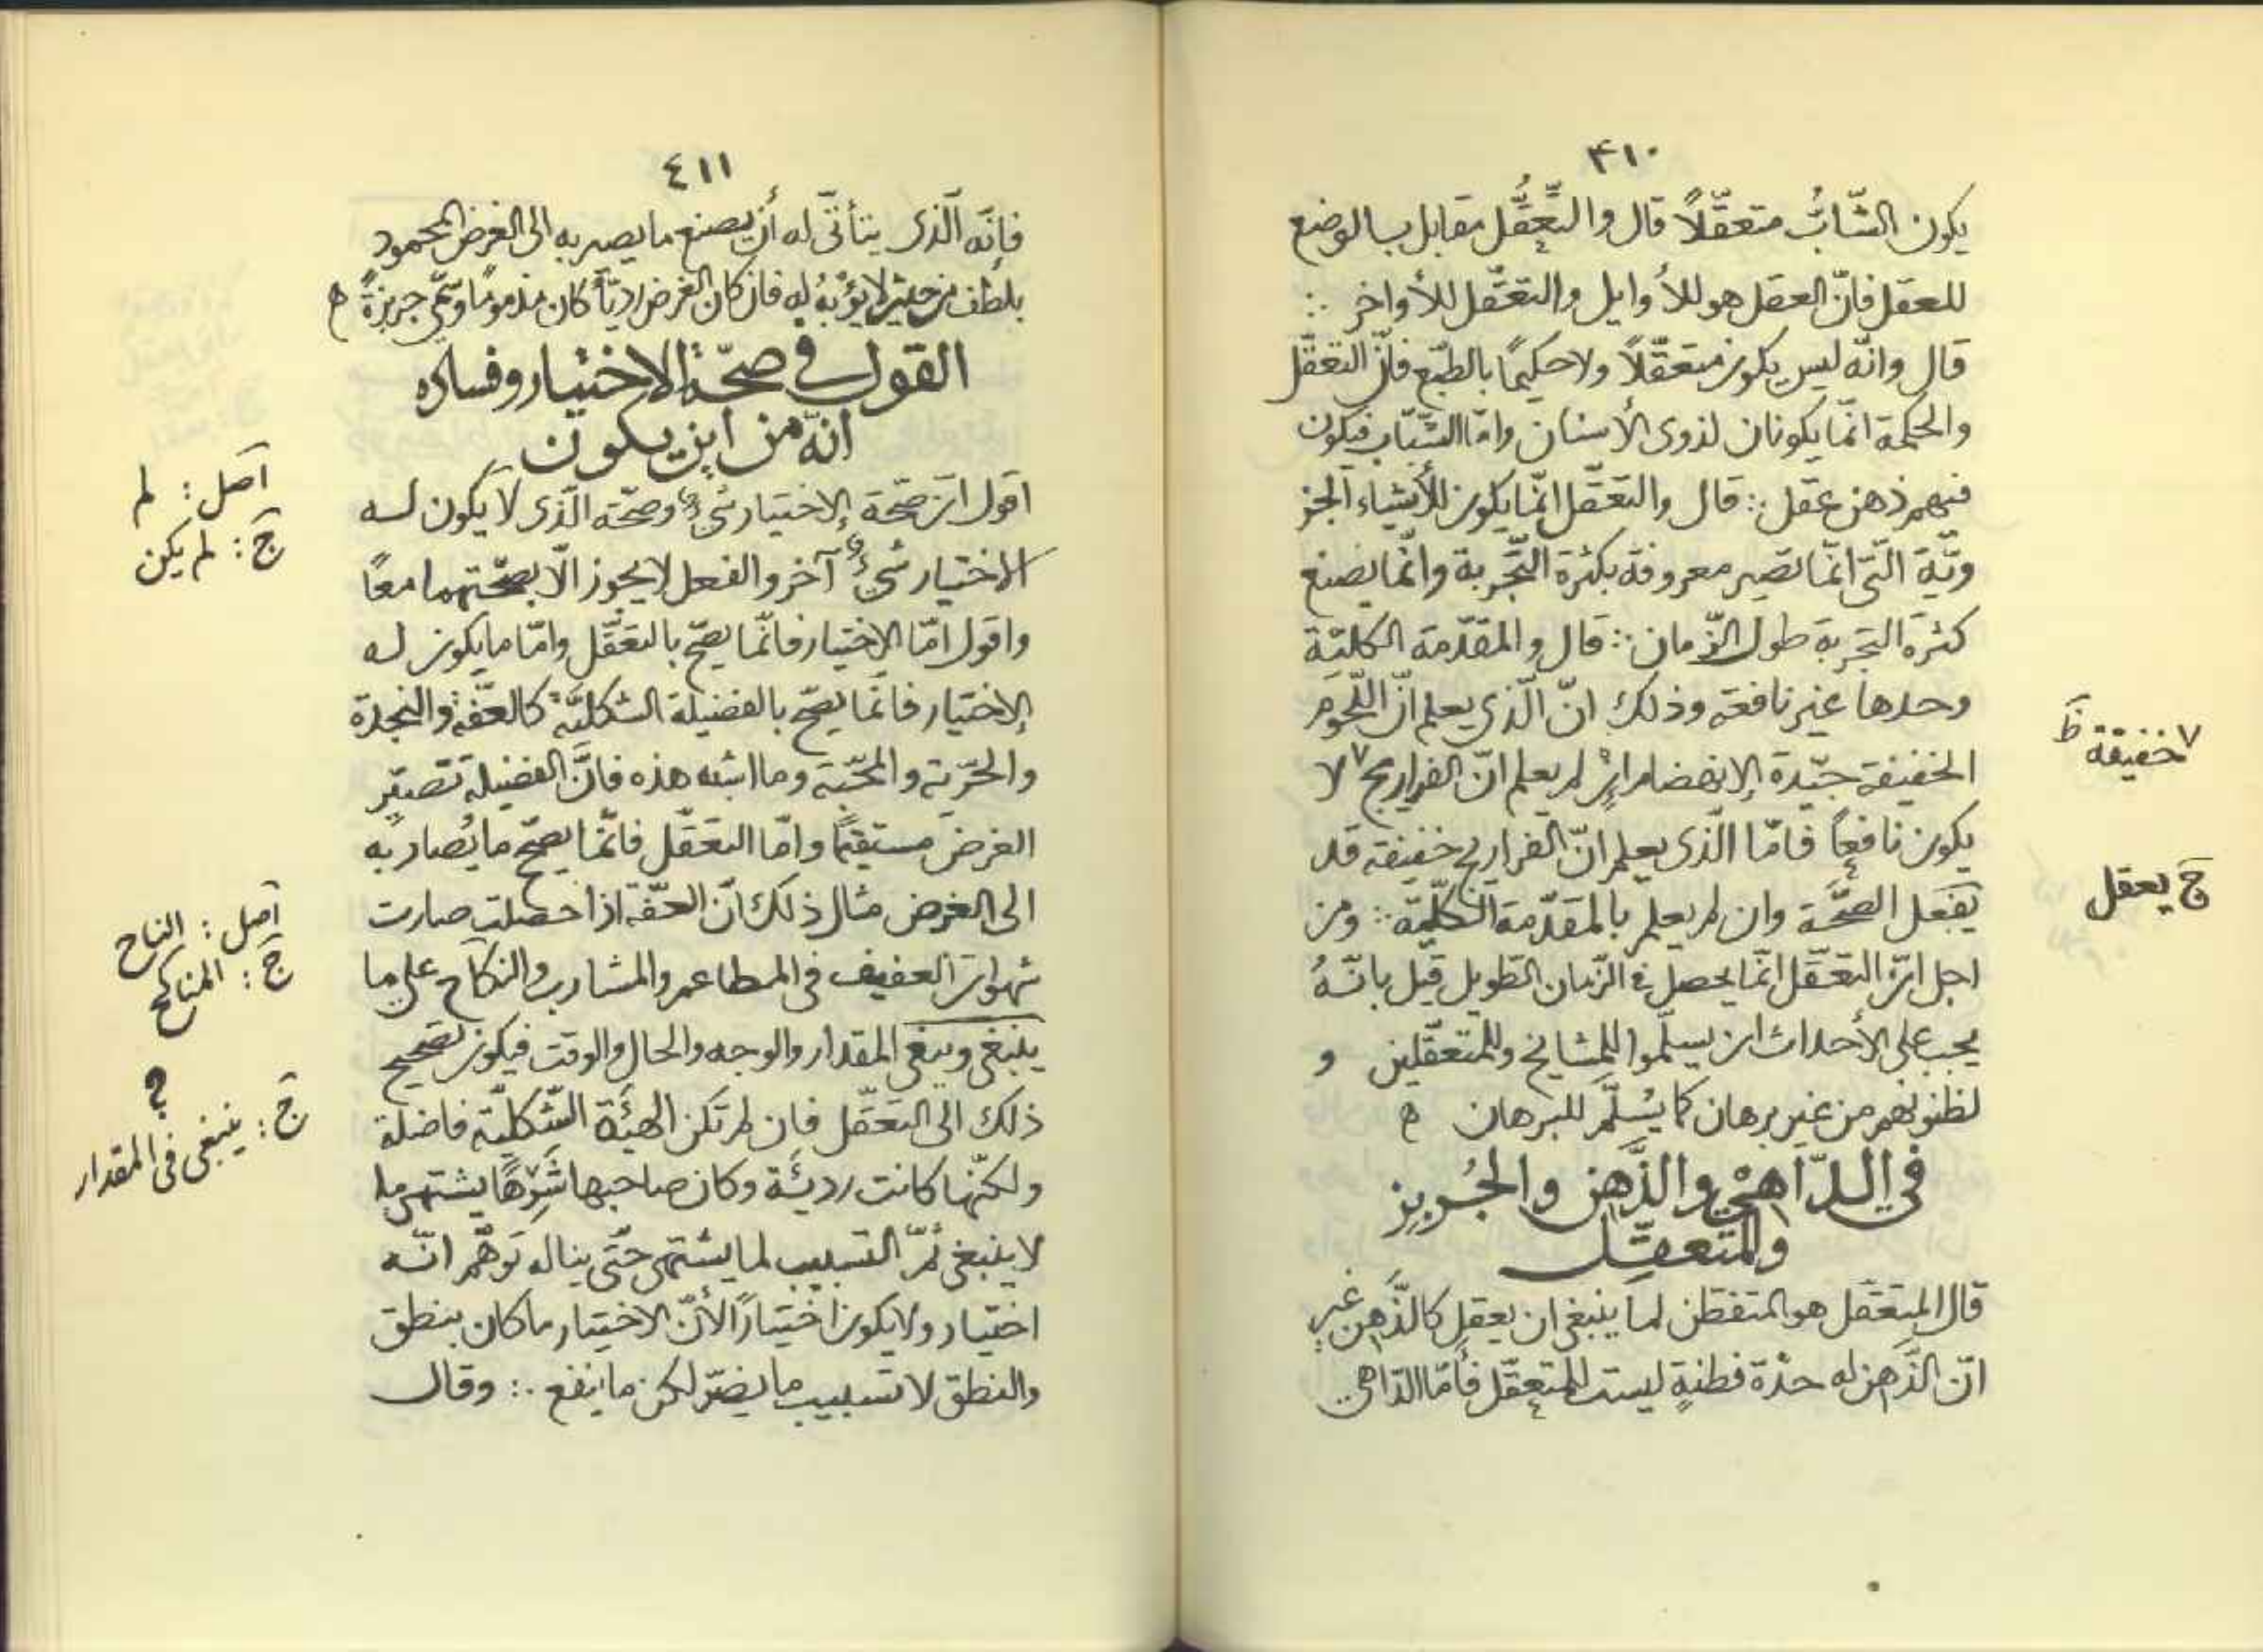 ٤١٠
يكون الشّابُّ متعقّلًا قال والتَّعقُّل مقابل بالوضع
للعقل فانّ العقل هو للأوايل والتعقّل للأواخر ∴
قال وانّه ليس يكون متعقّلًا ولا حكيمًا بالطّبع فانّ التعقّل
والحكمة انّما يكونان لذوى الأسنان وامّا الشّبّاب فيكون
فيهم ذهن عقل ∴ قال والتعقّل انّما يكون للأشياء الجز
ويّة الّتى انّما تصير معروفة بكثرة التّجربة وانّما يصنع
كثرة التجربة طول الزّمان ∴ قال والمقدّمة الكليّة
وحدها غير نافعة وذلك انّ الّذى يعلم انّ اللّحوم
الخفيفة جيّدة الانهضام ان لم يعلم انّ الفراريج ٧ لا
يكون نافعًا فامّا الّذى يعلم انّ الفراريج خفيفة قد
يفعل الصّحّة وان لم يعلم بالمقدّمة الكلّيّة ∴ ومن
اجل انّ التعقّل انّما يحصل فى الزّمان الطّويل قيل بانّهُ
يجب على الأحداث ان يسلّموا للمشايخ وللمتعقّلين و
لظنونهم من غير برهان كما يُسلَّم للبرهان ه
فى الدّاهى والذَّهِن والجُربز
والمتعقّل
قال المتعقّل هو المتفطّن لما ينبغى ان يعقل كالذَّهِن غير
انّ الذَّهِن له حدّة فطنةٍ ليست للمتعقّل فأمّا الدّاهى
٧ خفيفة ظ
ج يعقل
٤١١
فإنّه الّذى يتأتّى له أن يصنع ما يصير به الى الغرض المحمود
بلطف من حيث لا يؤبهُ له فان كان الغرض رديّأ كان مذمومًا وسمّى جربزةً ه
القول فى صحّة الاختيار وفساده
انّه من اين يكون
اقول انّ صحّة الاختيار شىء وصحّة الّذى لا يكون له
الاختيار شىء آخر والفعل لا يجوز الّا بصحّتهما معًا
واقول امّا الاختيار فانّما يصحّ بالتعقّل وامّا ما يكون له
الاختيار فانّما يصحّ بالفضيلة الشكليّة كالعفّة والنجدة
والحرّية والمحبّة وما اشبه هذه فانّ الفضيلة تصيّر
الغرض مستقيمًا وامّا التعقّل فانّما يصحّح ما يُصار به
الى الغرض مثال ذلك انّ العفّة اذا حصلت صارت
شهوات العفيف فى المطاعم والمشارب والنكاح على ما
ينبغى وينبغى المقدار والوجه والحال والوقت فيكون تصحيح
ذلك الى التعقّل فان لم تكن الهيئة الشّكليّة فاضلة
ولكنّها كانت رديئة وكان صاحبها شَرِهًا يشتهى ما
لا ينبغى ثمّ التسبيب لما يشتهى حتّى يناله توهّم انّه
اختيار ولا يكون اختيارًا لأنّ الاختيار ما كان بنطق
والنطق لا تسبيب ما يضرّ لكن ما ينفع ∴ وقال
اصل : لم
ج : لم يكن
اصل : الناح
ج : المناكح
؟
ج : ينبغى فى المقدار